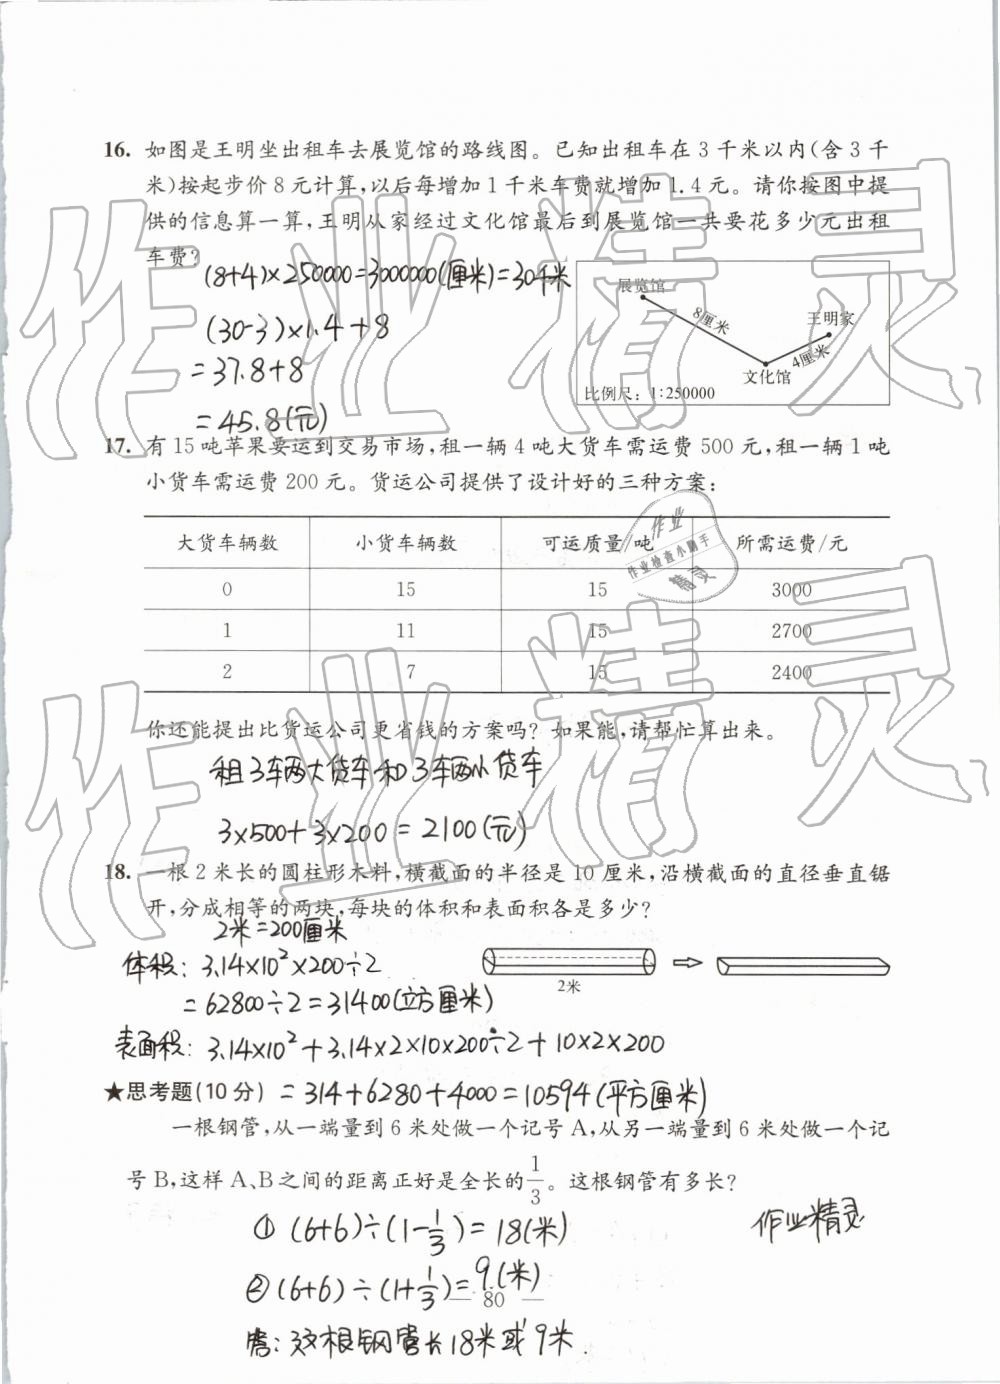 16. 如图是王明坐出租车去展览馆的路线图。已知出租车在3千米以内(含3千
米)按起步价8元计算,以后每增加1千米车费就增加1.4元。请你按图中提
供的信息算一算,王明从家经过文化馆最后到展览馆一共要花多少元出租
车费?
(8+4)×250000=3000000(厘米)=30千米
(30-3)×1.4+8
=37.8+8
=45.8(元)
展览馆
8厘米
王明家
4厘米
文化馆
比例尺：1:250000
17. 有15吨苹果要运到交易市场,租一辆4吨大货车需运费500元,租一辆1吨
小货车需运费200元。货运公司提供了设计好的三种方案：
大货车辆数 小货车辆数 可运质量/吨 所需运费/元
0 15 15 3000
1 11 15 2700
2 7 15 2400
你还能提出比货运公司更省钱的方案吗? 如果能,请帮忙算出来。
租3车辆大货车和3车辆小货车
3×500+3×200=2100(元)
18. 一根2米长的圆柱形木料,横截面的半径是10厘米,沿横截面的直径垂直锯
开,分成相等的两块,每块的体积和表面积各是多少?
2米=200厘米
体积：3.14×10²×200÷2
=62800÷2=31400(立方厘米)
2米
表面积：3.14×10²+3.14×2×10×200÷2+10×2×200
=314+6280+4000=10594(平方厘米)
★思考题(10分)
一根钢管,从一端量到6米处做一个记号A,从另一端量到6米处做一个记
号B,这样A、B之间的距离正好是全长的1/3。这根钢管有多长?
① (6+6)÷(1-1/3)=18(米)
② (6+6)÷(1+1/3)=9(米)
答：这根钢管长18米或9米.
作业精灵
— 80 —
作业精灵
作业精灵
作业
作业检查小助手
精灵